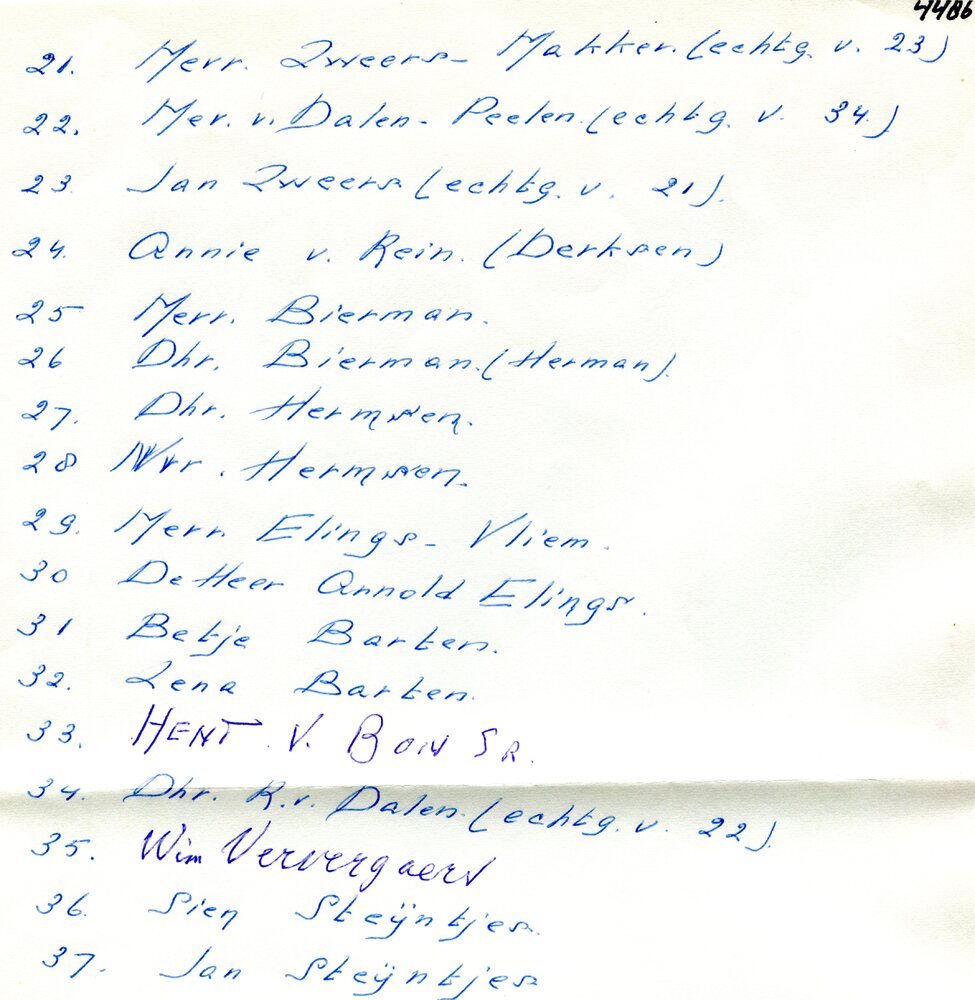 4486
21. Mevr. Zweers- Makker. (echtg. v. 23)
22. Mev. v. Dalen- Peelen. (echtg. v. 34.)
23. Jan Zweers (echtg. v. 21).
24. Annie v. Rein. (Derksen)
25 Mevr. Bierman.
26 Dhr. Bierman. (Herman).
27. Dhr. Hermsen.
28 Mvr. Hermsen.
29. Mevr. Elings- Vliem.
30 De Heer Arnold Elings.
31 Betje Barten.
32. Lena Barten.
33. HENT V. BON SR.
34. Dhr. R. v. Dalen. (echtg. v. 22).
35. Wim Ververgaert
36. Sien Steÿntjes.
37. Jan Steÿntjes